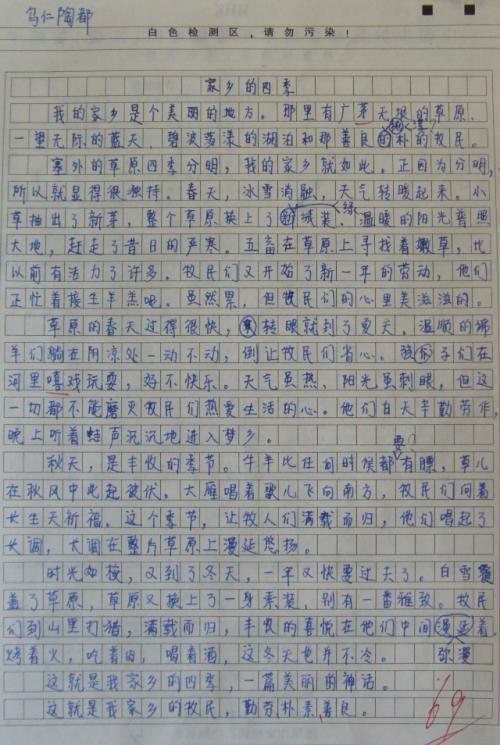 乌仁陶都
白色检测区，请勿污染！
家乡的四季
我的家乡是个美丽的地方。那里有广茅无垠的草原、
一望无际的蓝天、碧波荡漾的湖泊和那善良的朴的牧民。
塞外的草原四季分明，我的家乡就如此。正因为分明，
所以就显得很独特。春天，冰雪消融，天气转暖起来。小
绿
草抽出了新芽，整个草原换上了绒装。温暖的阳光普照
大地，赶走了昔日的严寒。五畜在草原上寻找着嫩草，比
以前有活力了许多。牧民们又开始了新一年的劳动，他们
正忙着接生羊羔呢。虽然累，但牧民们的心里美滋滋的。
草原的春天过得很快，转眼就到了夏天。温顺的绵
羊们躺在阴凉处一动不动，倒让牧民们省心。孩子们在
河里嘻戏玩耍，好不快乐。天气虽热、阳光虽刺眼，但这
一切都不能磨灭牧民们热爱生活的心。他们白天辛勤劳作，
晚上听着蛙声沉沉地进入梦乡。
要
秋天，是丰收的季节。牛羊比任何时候都有膘，草儿
在秋风中此起彼伏。大雁唱着歌儿飞向南方，牧民们向着
长生天祈福。这个季节，让牧人们满载而归，他们唱起了
长调，长调在整片草原上漫延悠扬。
时光如梭，又到了冬天，一年又快要过去了。白雪覆
盖了草原，草原又换上了一身素装，别有一番雅致。牧民
们到山里打猎，满载而归，丰收的喜悦在他们中间漫延着。
弥漫
烤着火，吃着肉，喝着酒，这冬天也并不冷。
这就是我家乡的四季，一篇美丽的神话。
这就是我家乡的牧民，勤劳、朴素、善良。
69